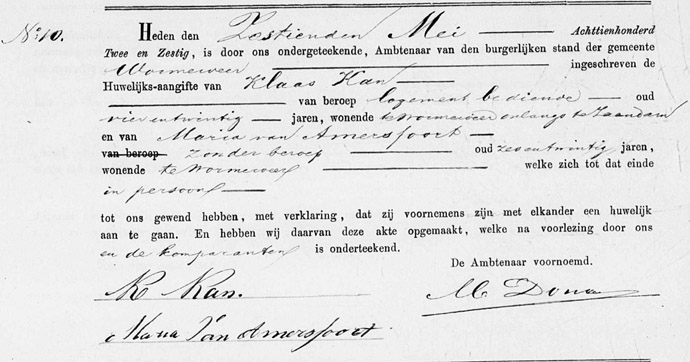 No: 10.
Heden den Zestienden Mei Achttienhonderd
Twee en Zestig, is door ons ondergeteekende, Ambtenaar van den burgerlijken stand der gemeente
Wormerveer ingeschreven de
Huwelijks-aangifte van Klaas Kan
van beroep logement bediende oud
vierentwintig jaren, wonende te Wormerveer onlangs te Zaandam
en van Maria van Amersfoort
van beroep zonder beroep oud zesentwintig jaren,
wonende te Wormerveer welke zich tot dat einde
in persoon
tot ons gewend hebben, met verklaring, dat zij voornemens zijn met elkander een huwelijk
aan te gaan. En hebben wij daarvan deze akte opgemaakt, welke na voorlezing door ons
en de komparanten is onderteekend.
De Ambtenaar voornoemd.
K Kan.
Maria Van Amersfoort